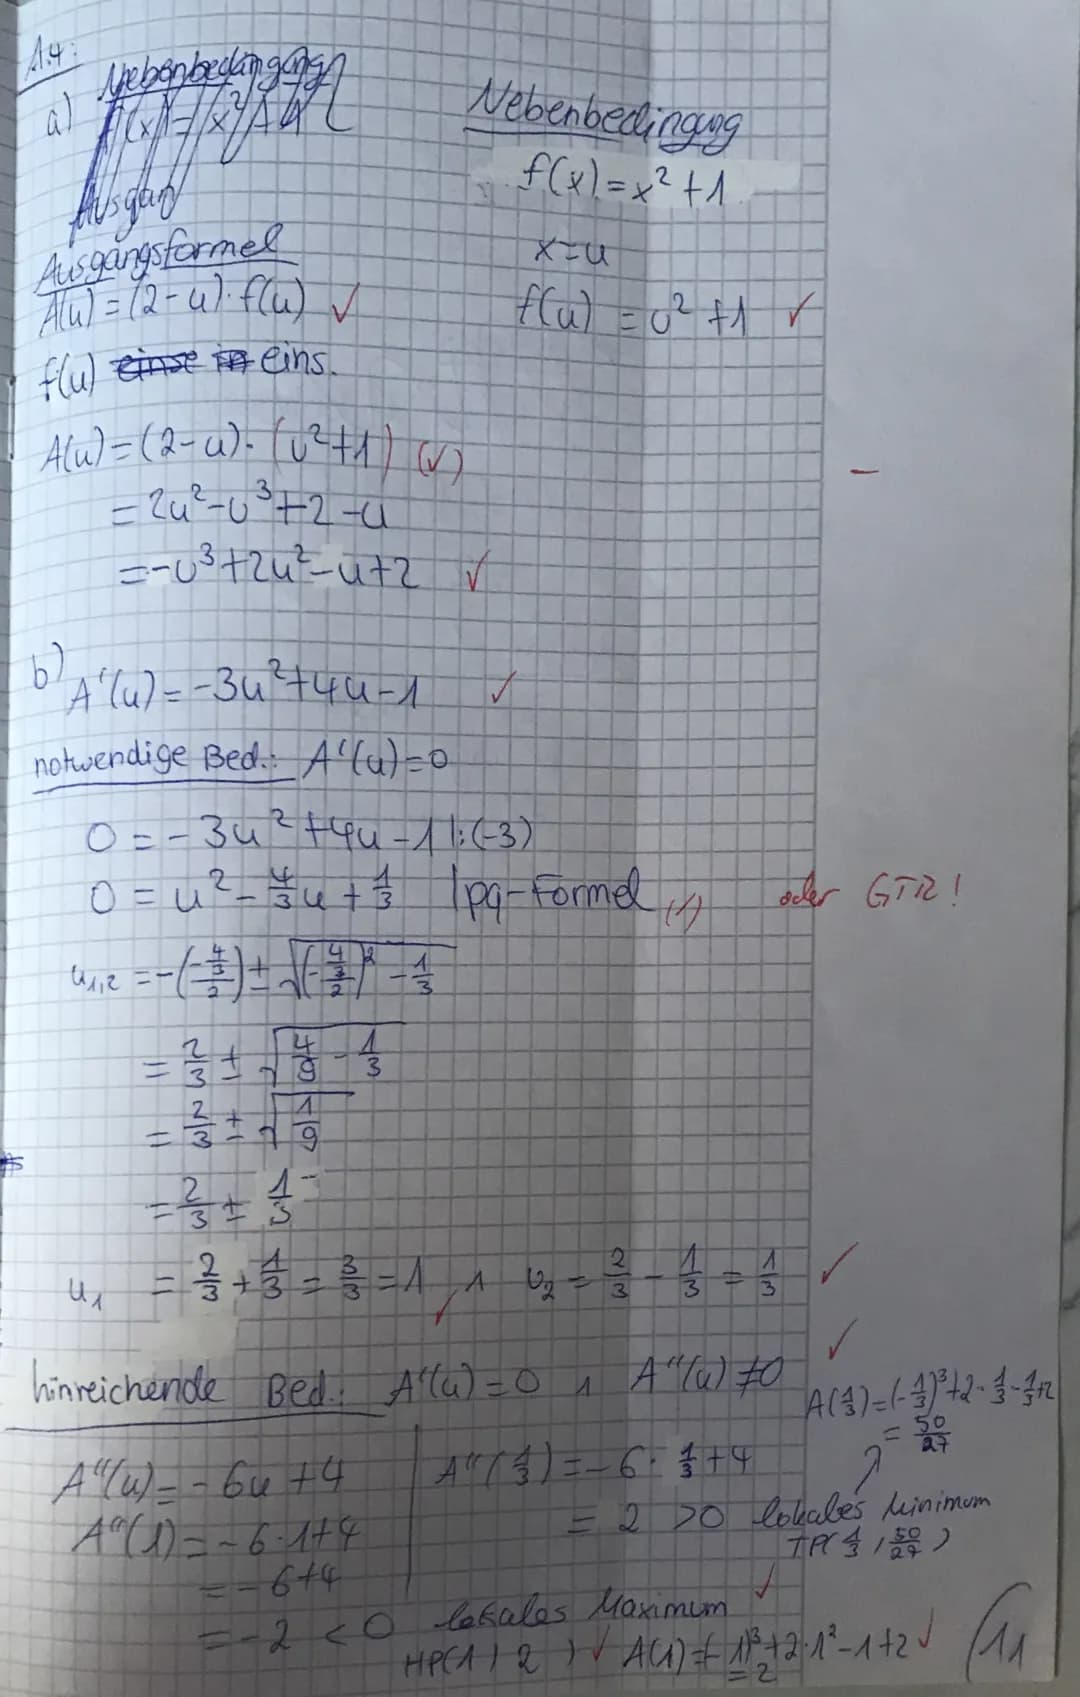 A.4:
a) Nebenbedingung
f(x)=x²+1
Ausgan
Nebenbedingung
f(x)=x²+1
x=u
f(u) =u²+1 ✓
Ausgangsformel
A(u)=(2-u)·f(u) ✓
f(u) einse in eins.
A(u)=(2-u)·(u²+1) (✓)
=2u²-u³+2-u
=-u³+2u²-u+2 ✓
b) A'(u)=-3u²+4u-1 ✓
notwendige Bed.: A'(u)=0
0=-3u²+4u-1 |:(-3)
0=u²-4/3u+1/3 |pq-Formel (✓) oder GTR!
u1,2=-(-4/3/2)±√((-4/3/2)²-1/3)
=2/3±√(4/9-1/3)
=2/3±√(1/9)
=2/3±1/3
u1 =2/3+1/3=3/3=1 ✓ ∧ u2=2/3-1/3=1/3 ✓
hinreichende Bed.: A'(u)=0 ∧ A''(u)≠0 ✓
A(1/3)=(-1/3)³+2·1/3-1/3+2
=50/27
A''(u)=-6u+4
A''(1)=-6·1+4
=-6+4
=-2<0 lokales Maximum ✓
HP(1|2) ✓ A(1)=(-1)³+2·1²-1+2 ✓
=2
A''(1/3)=-6·1/3+4
=2 >0 lokales Minimum
TP(1/3|50/27)
11